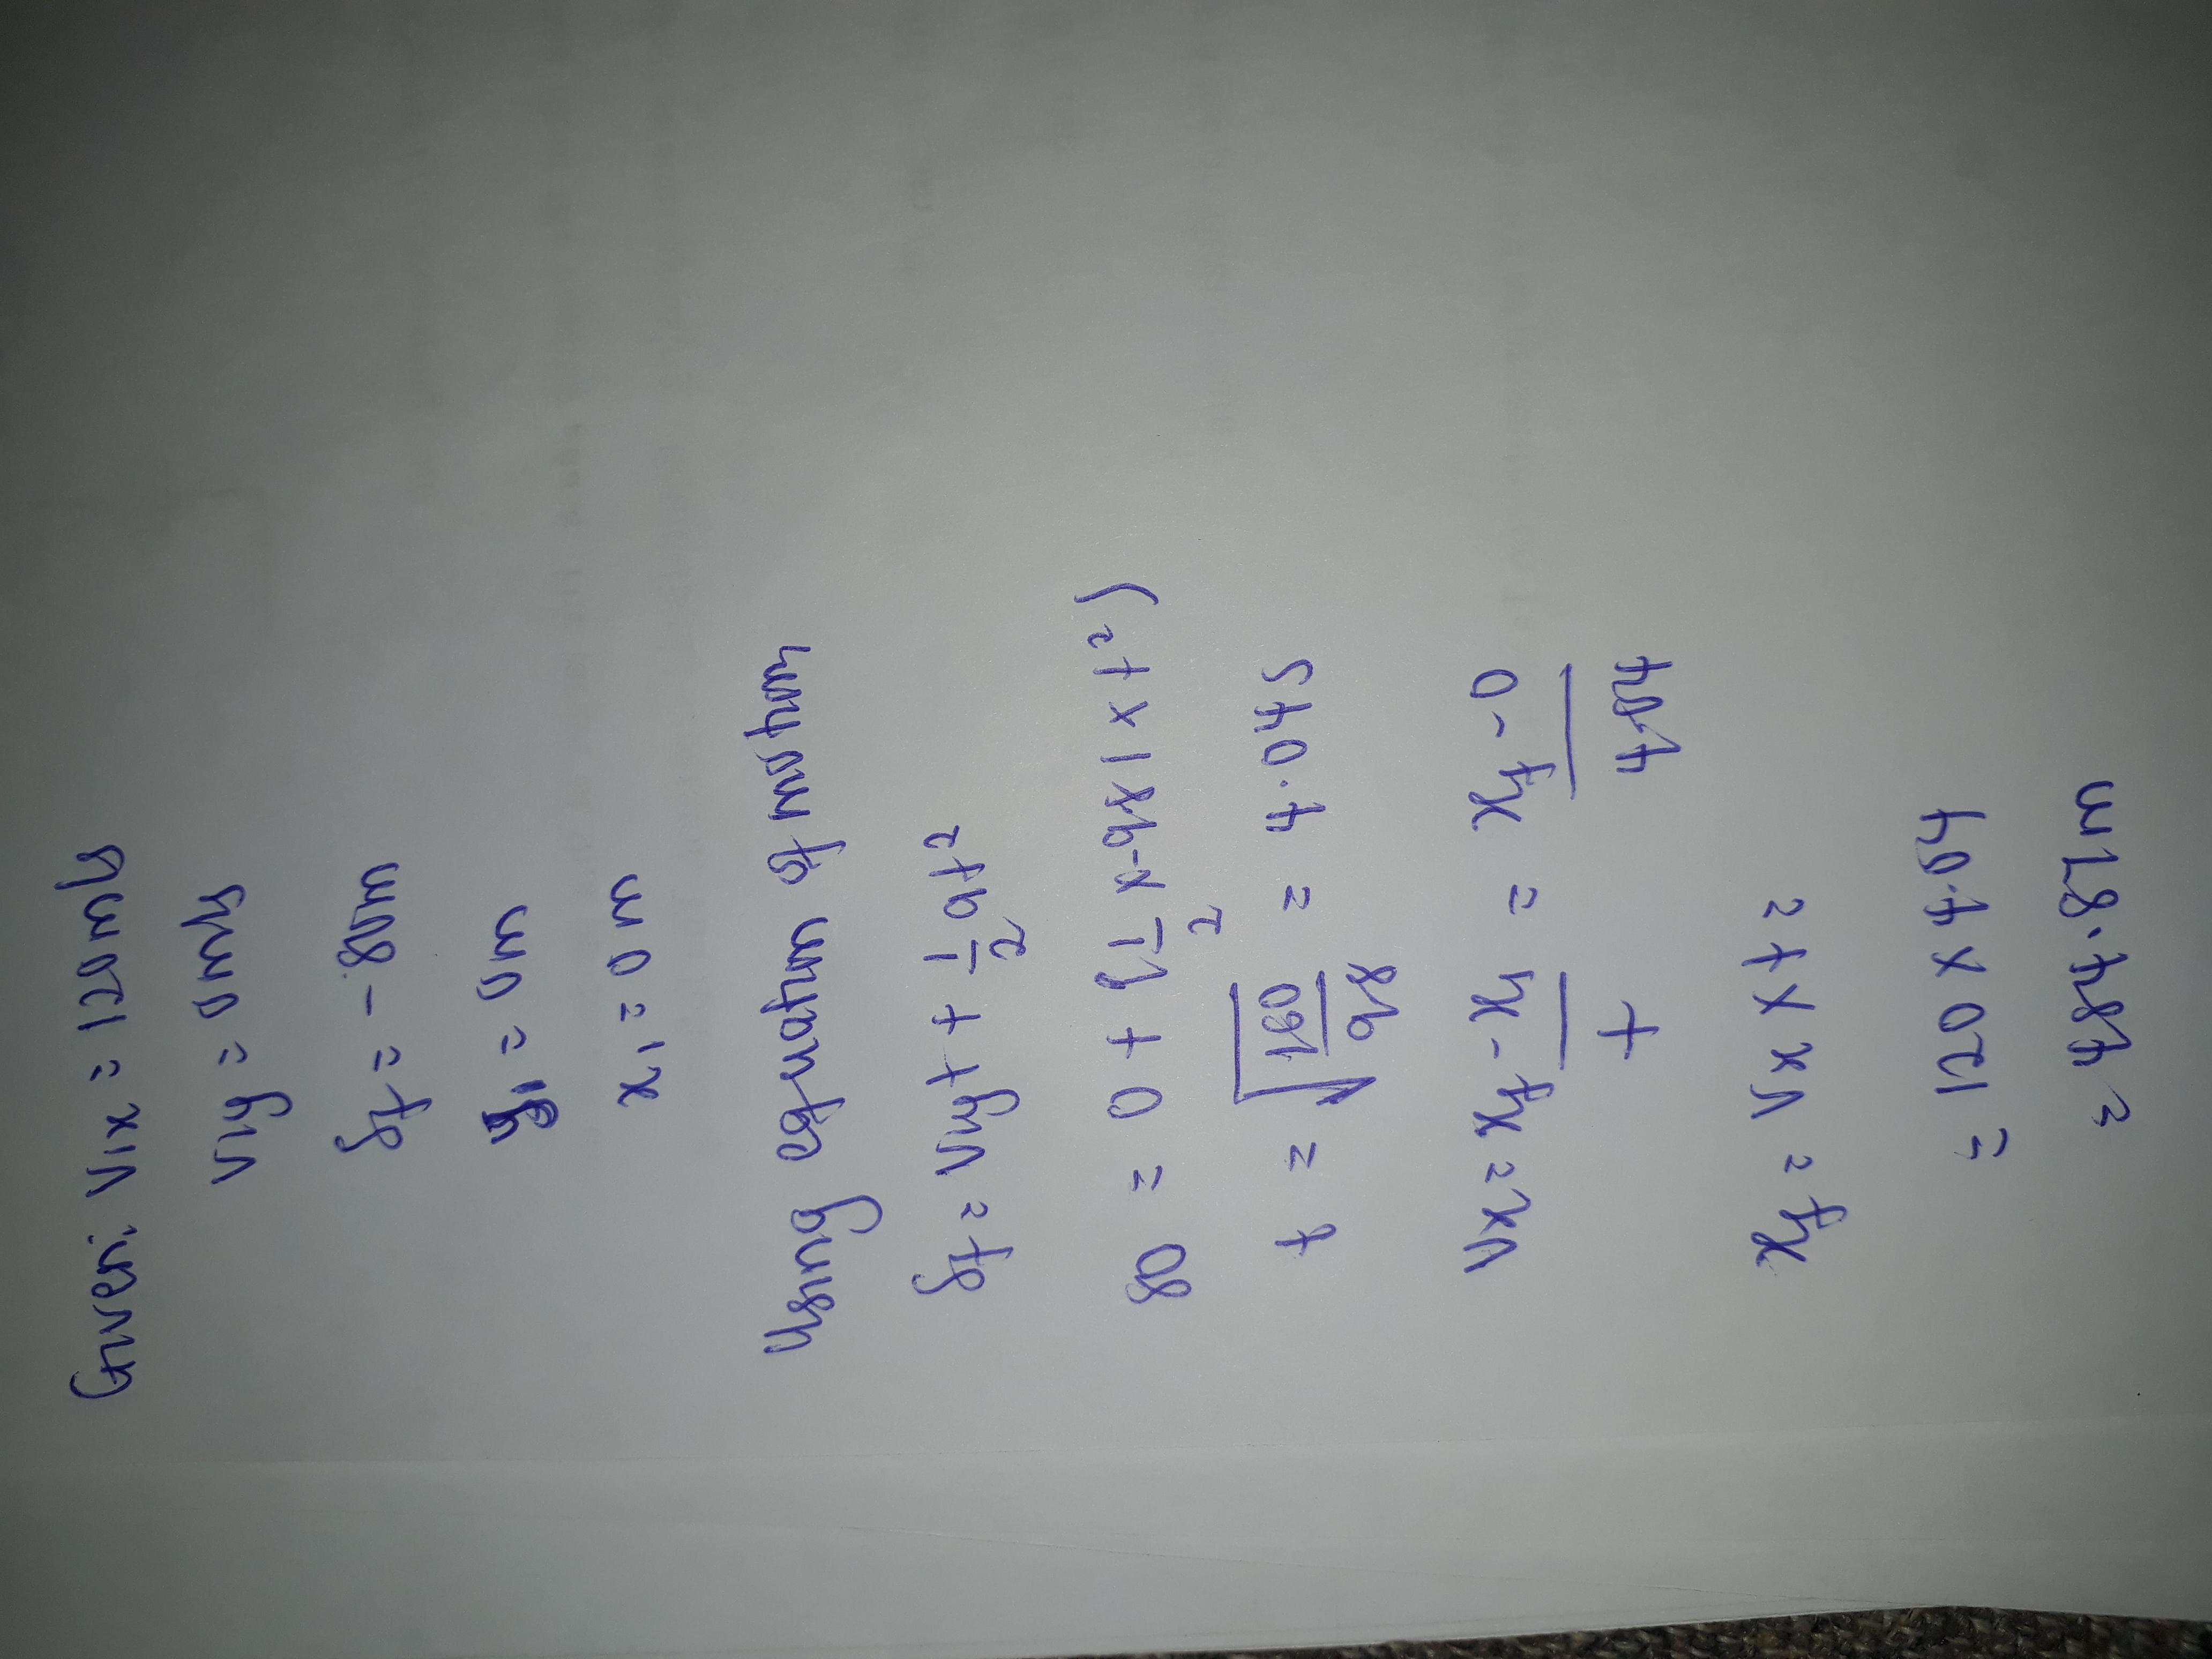 Given: Vix = 120m/s
Viy = 0m/s
yf = -80m
yi = 0m
xi = 0m
Using equation of motion
yf = Viyt + 1/2 at²
80 = 0 + (1/2 x-9.81 x t²)
t = √160/9.8 = 4.04s
Vx = xf - xi / t = xf - 0 / 4.04
xf = Vx x t =
= 120 x 4.04
= 484.87m